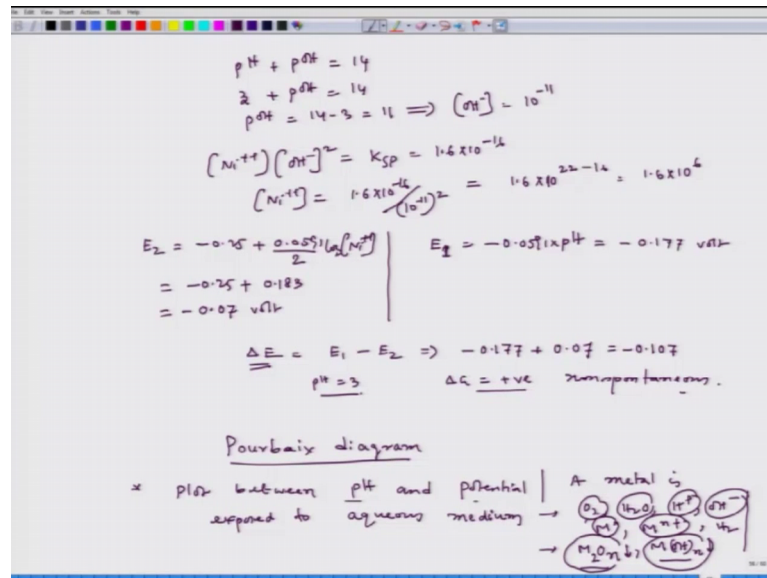 File Edit View Insert Actions Tools Help
pH + pOH = 14
3 + pOH = 14
pOH = 14-3 = 11 ⇒ [OH⁻] = 10⁻¹¹
[Ni⁺⁺][OH⁻]² = Ksp = 1.6×10⁻¹⁶
[Ni⁺⁺] = 1.6×10⁻¹⁶/(10⁻¹¹)² = 1.6×10²²⁻¹⁶ = 1.6×10⁶
E₂ = -0.25 + 0.0591/2 log[Ni⁺⁺]
= -0.25 + 0.183
= -0.07 volt
E₁ = -0.0591×pH = -0.177 volt
ΔE = E₁ - E₂ ⇒ -0.177 + 0.07 = -0.107
pH = 3 ΔG = +ve nonspontaneous.
Pourbaix diagram
* Plot between pH and potential
exposed to aqueous medium
A metal is
→ O₂, H₂O, H⁺, OH⁻
M, Mⁿ⁺, H₂
→ M₂Oₙ↓, M(OH)ₙ↓